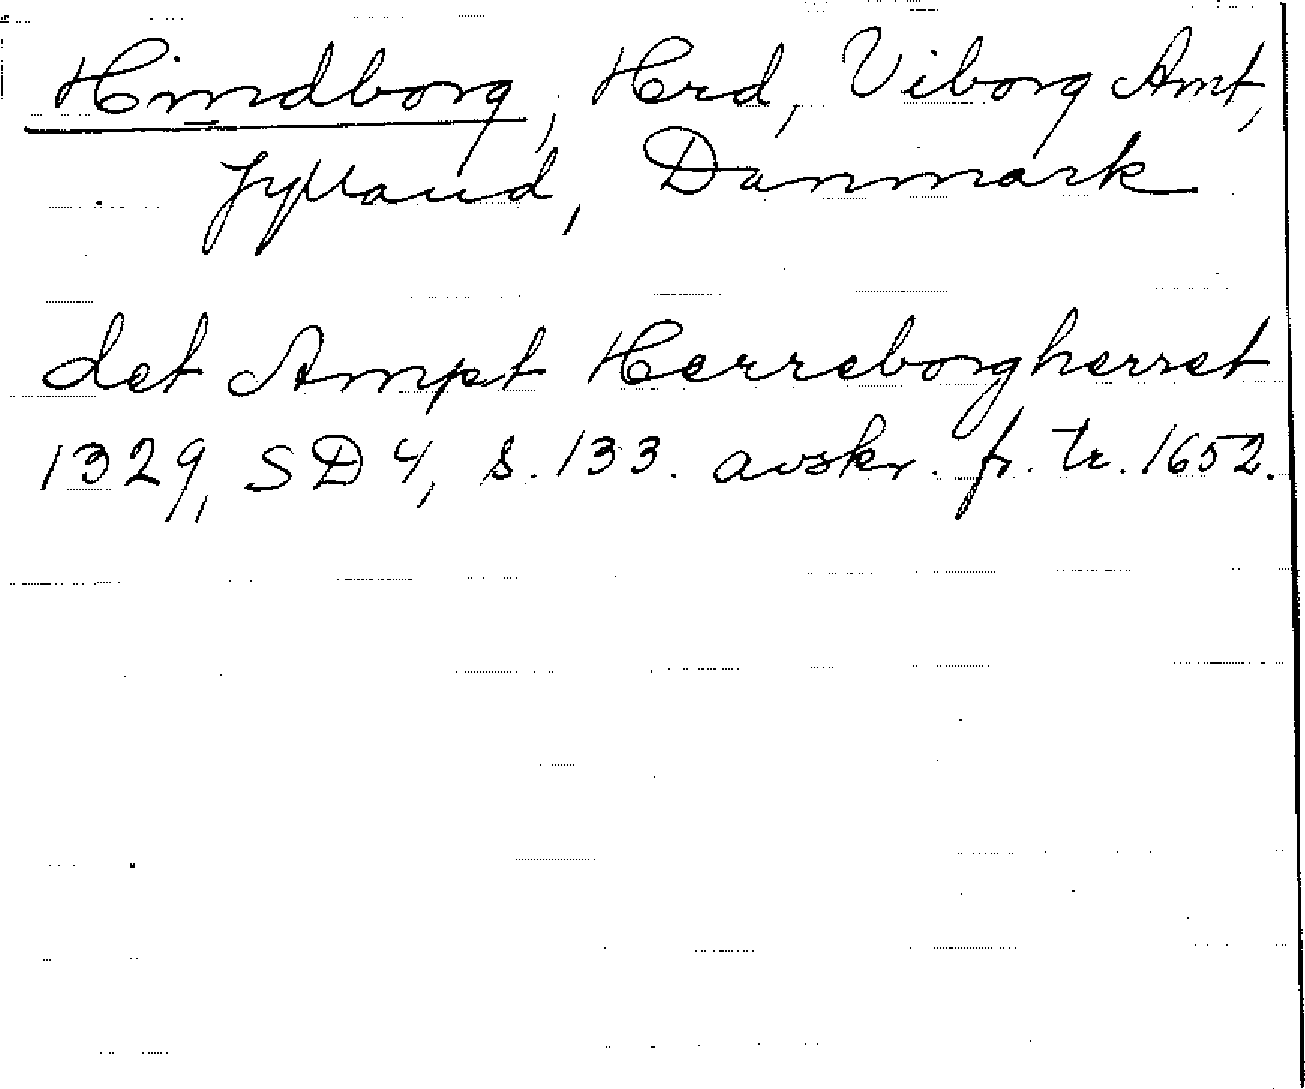 Hindborg, Herd, Viborg Amt,
Jylland, Danmark
det Ampt Herreborgherret
1329, SD 4, s. 133. avskr. fr. tr. 1652.